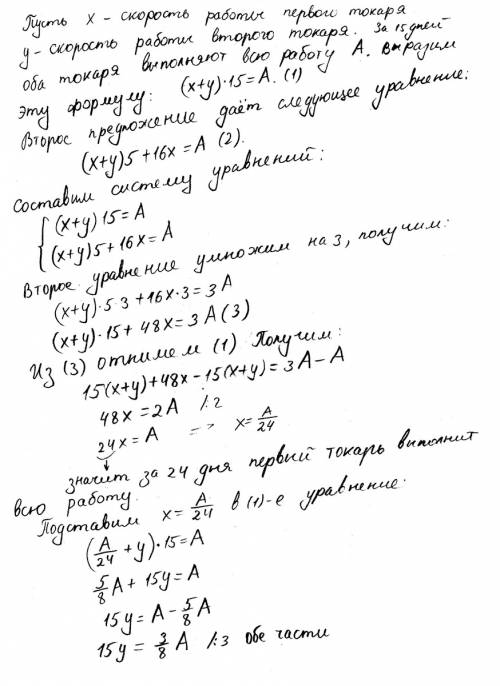 Пусть x - скорость работы первого токаря
y - скорость работы второго токаря. За 15 дней
оба токаря выполняют всю работу A. Выразим
эту формулу: (x+y)·15=A. (1)
Второе предложение даёт следующее уравнение:
(x+y)5+16x=A (2).
Составим систему уравнений:
{(x+y)15=A
(x+y)5+16x=A
Второе уравнение умножим на 3, получим:
(x+y)·5·3+16x·3=3A
(x+y)·15+48x=3A (3)
Из (3) отнимем (1) Получим:
15(x+y)+48x-15(x+y)=3A-A
48x=2A /:2
24x=A => x=A/24
значит за 24 дня первый токарь выполнит
всю работу.
Подставим x=A/24 в (1)-е уравнение:
(A/24+y)·15=A
5/8A+15y=A
15y=A-5/8A
15y=3/8A /:3 обе части